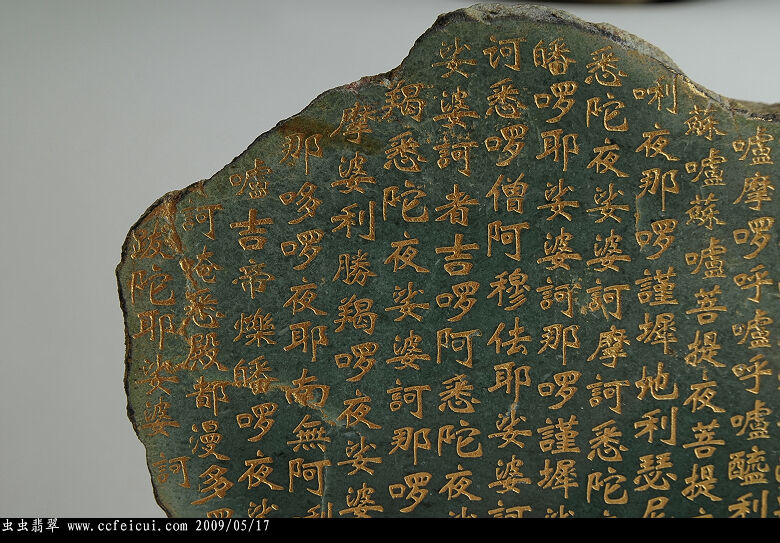 嚧摩囉呼嚧呼嚧醯利
蘇嚧蘇嚧菩提夜菩提
唎夜那囉謹墀地利瑟尼
悉陀夜娑婆訶摩訶悉陀
皤囉耶娑婆訶那囉謹墀
訶悉囉僧阿穆佉耶娑婆訶
娑婆訶者吉囉阿悉陀夜
羯悉陀夜娑婆訶那囉
摩婆利勝羯囉夜娑婆
那哆囉夜耶南無阿利
嚧吉帝爍皤囉夜娑
訶唵悉殿都漫多囉
跋陀耶娑婆訶
虫虫翡翠 www.ccfeicui.com 2009/05/17